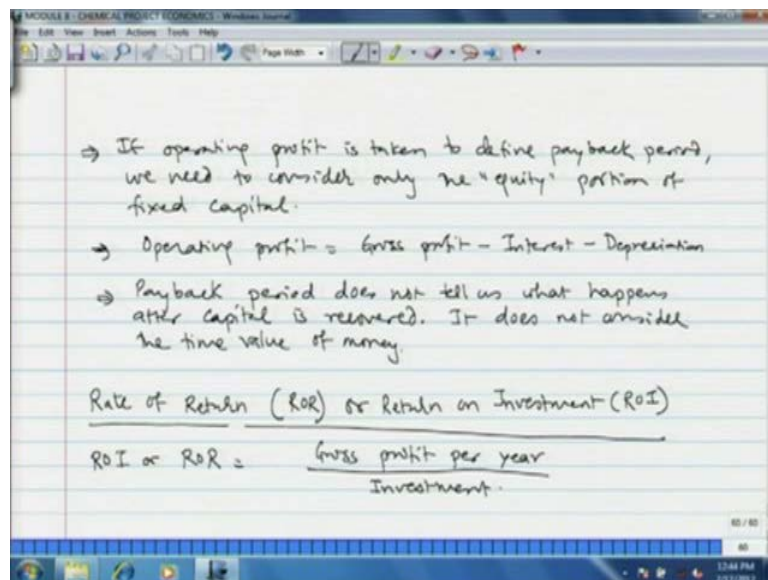 MODULE 8 - CHEMICAL PROJECT ECONOMICS - Windows Journal
File Edit View Insert Actions Tools Help
Page Width
⇒ If operating profit is taken to define payback period,
we need to consider only the "equity" portion of
fixed capital.
→ Operating profit = Gross profit - Interest - Depreciation
⇒ Payback period does not tell us what happens
after capital is recovered. It does not consider
the time value of money.
Rate of Return (ROR) or Return on Investment (ROI)
ROI or ROR = Gross profit per year
Investment.
60 / 60
60
12:44 PM